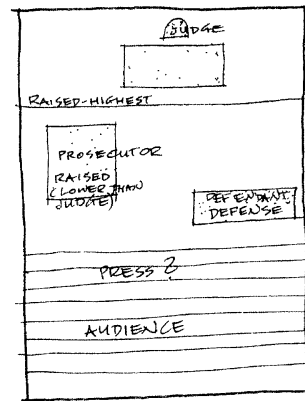 JUDGE
RAISED-HIGHEST
PROSECUTOR
RAISED
(LOWER THAN
JUDGE)
DEFENDANT
DEFENSE
PRESS?
AUDIENCE